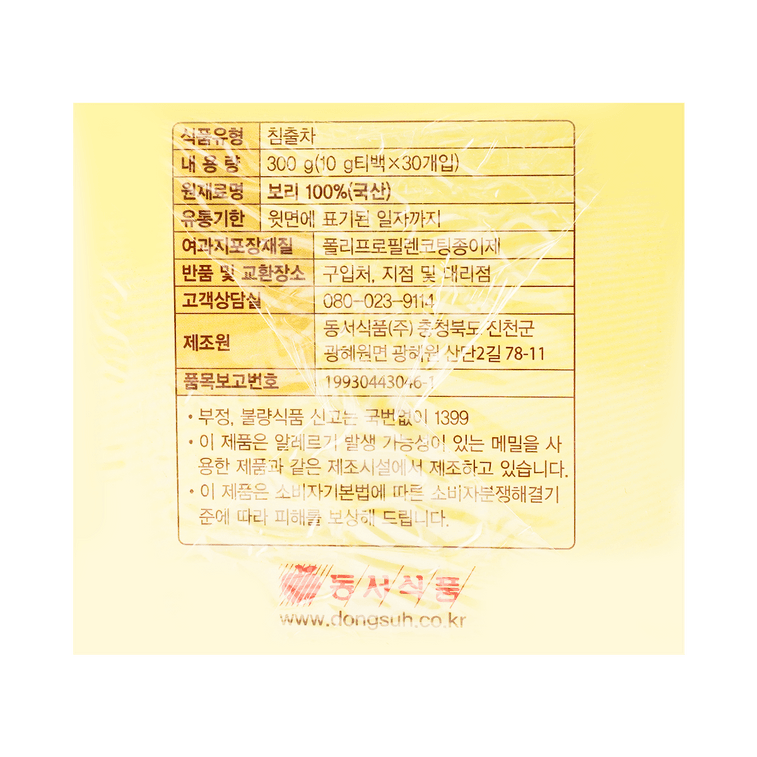 식품유형 침출차
내 용 량 300 g(10 g티백×30개입)
원재료명 보리 100%(국산)
유통기한 윗면에 표기된 일자까지
여과지포장재질 폴리프로필렌코팅종이제
반품 및 교환장소 구입처, 지점 및 대리점
고객상담실 080-023-9114
제조원 동서식품(주) 충청북도 진천군
광혜원면 광혜원 산단2길 78-11
품목보고번호 19930443046-1
• 부정, 불량식품 신고는 국번없이 1399
• 이 제품은 알레르기 발생 가능성이 있는 메밀을 사
용한 제품과 같은 제조시설에서 제조하고 있습니다.
• 이 제품은 소비자기본법에 따른 소비자분쟁해결기
준에 따라 피해를 보상해 드립니다.
동서식품
www.dongsuh.co.kr